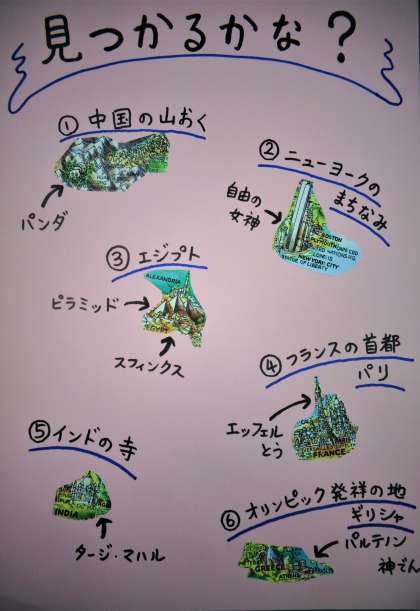 見つかるかな？
① 中国の山おく
パンダ
② ニューヨークの
まちなみ
自由の
女神
BOSTON
PLYMOUTH
NEW YORK CITY
STATUE OF LIBERTY
③ エジプト
ALEXANDRIA
ピラミッド
EGYPT
スフィンクス
④ フランスの首都
パリ
エッフェル
とう
FRANCE
⑤ インドの寺
INDIA
タージ・マハル
⑥ オリンピック発祥の地
ギリシャ
パルテノン
神でん
GREECE
ATHENS